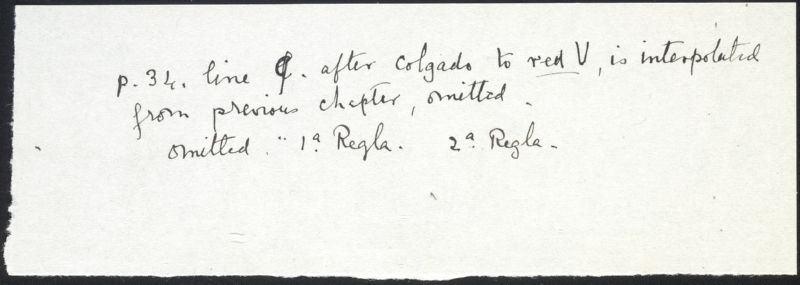 p. 34. line 9. after colgado to red V, is interpolated
from previous chapter, omitted.
omitted. " 1a Regla. 2a Regla.